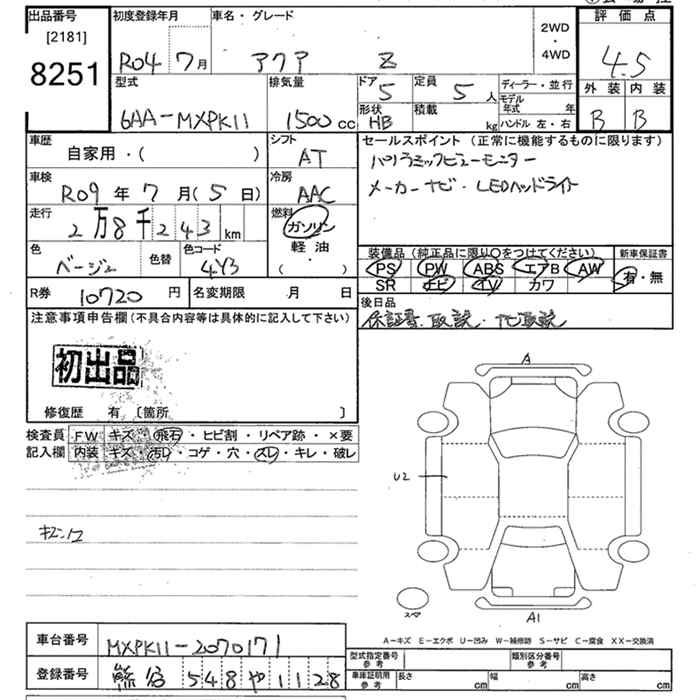 出品番号
[2181]
8251
初度登録年月
R04 7月
車名・グレード
アクア Z
2WD
・
4WD
評価点
4.5
外装 内装
B B
型式
6AA-MXPK11
排気量
1500 cc
ドア
5
定員
5 人
形状
HB
積載
kg
ディーラー・並行
モデル年式 年
ハンドル 左・右
車歴
自家用・( )
シフト
AT
車検
R09 年 7 月 ( 5 日)
冷房
AAC
走行
2万8千243 km
燃料
ガソリン
軽油
( )
色
ベージュ
色替
色コード
4Y3
セールスポイント (正常に機能するものに限ります)
パノラミックビューモニター
メーカーナビ・LEDヘッドライト
装備品 (純正品に限り○をつけてください)
新車保証書
PS PW ABS エアB AW
SR ナビ TV カワ
有・無
R券 10720 円
名変期限 月 日
後日品
保証書、取説・ナビ取説
注意事項申告欄 (不具合内容等は具体的に記入して下さい)
初出品
修復歴 有 〔箇所 〕
検査員
記入欄
FW キズ・飛石・ヒビ割・リペア跡・×要
内装 キズ・汚レ・コゲ・穴・スレ・キレ・破レ
A
U2
A1
A-キズ E-エクボ U-凹み W-補修跡 S-サビ C-腐食 XX-交換済
車台番号 MXPK11-2070171
登録番号 熊谷 548 や 1128
型式指定番号
参考
類別区分番号
参考
車庫証明用
参考
長さ cm 幅 cm 高さ cm